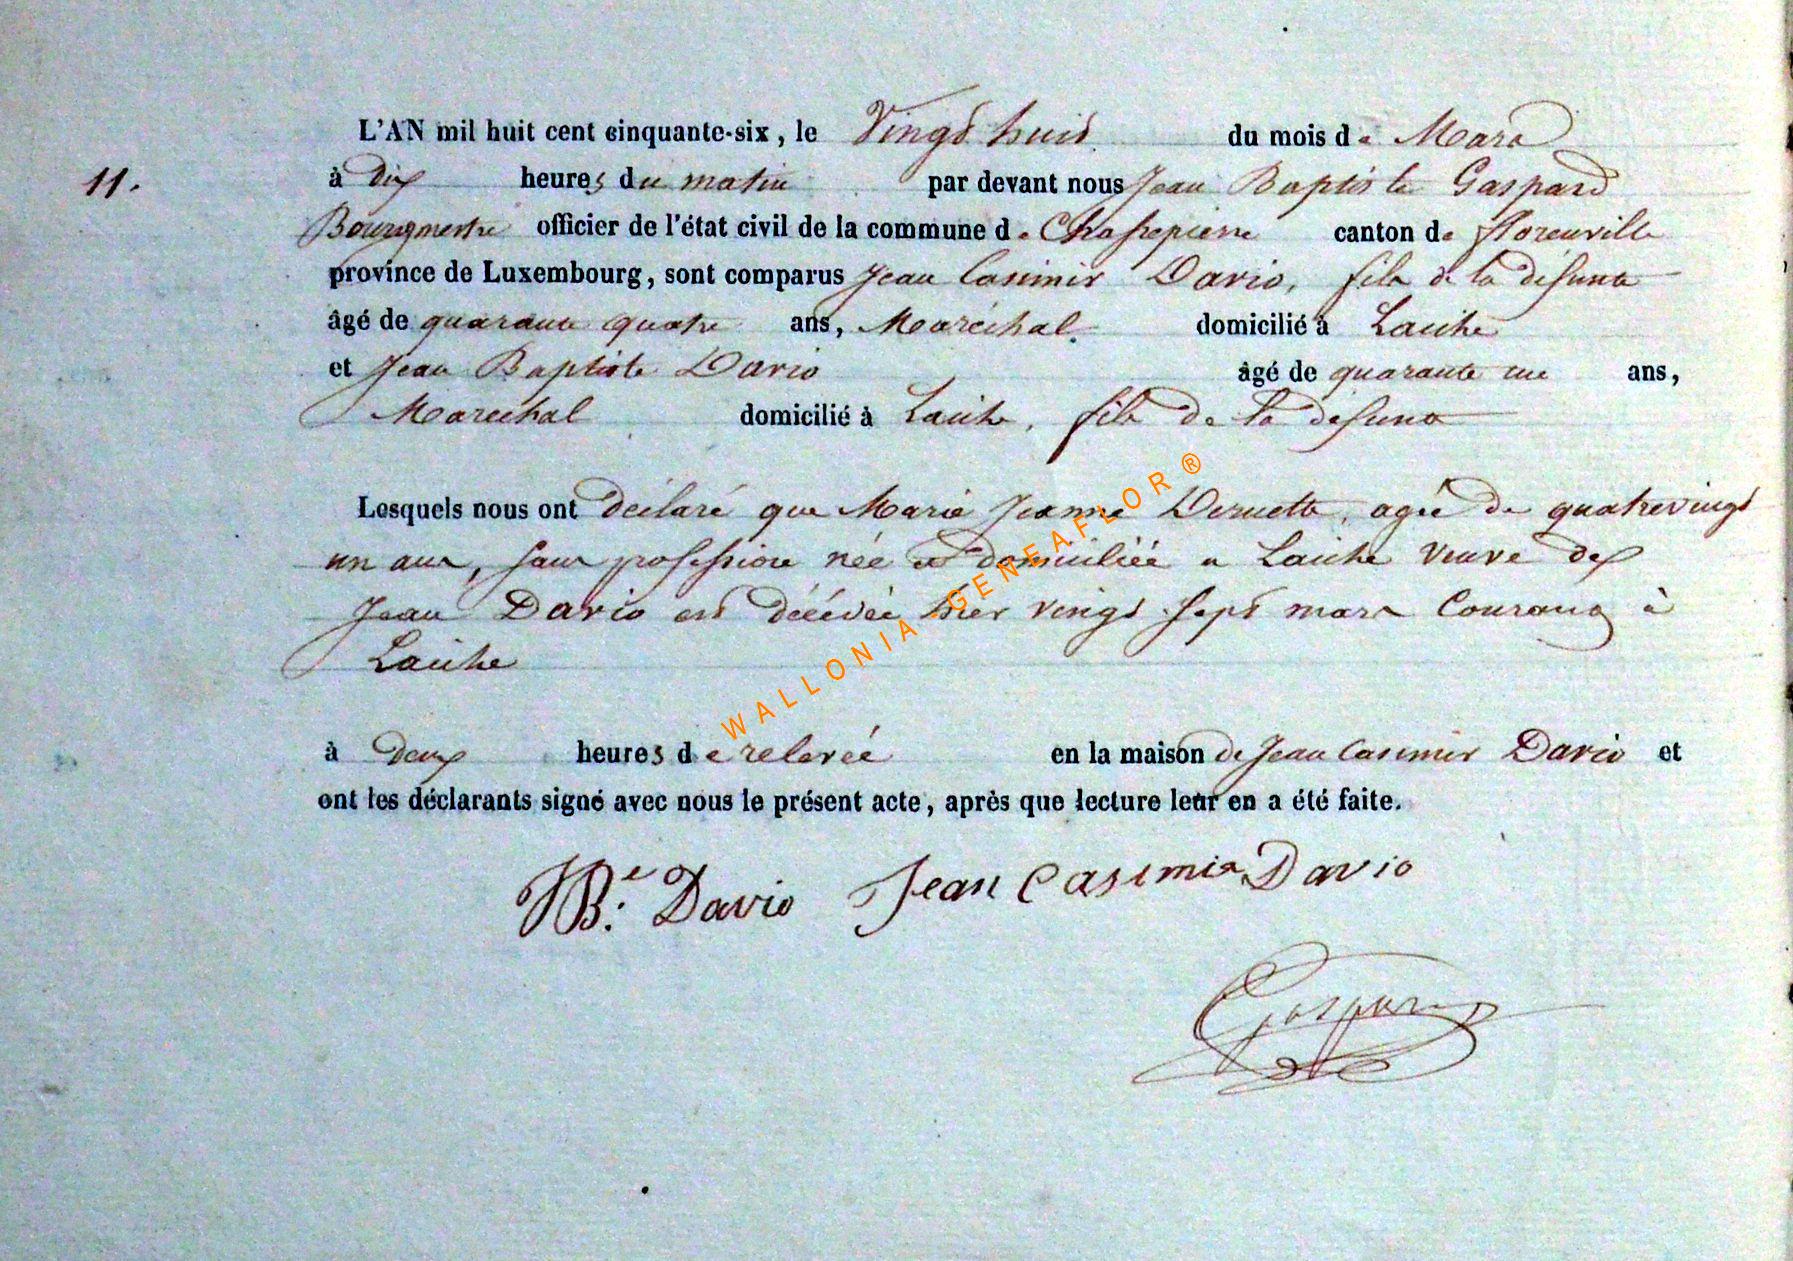 L'AN mil huit cent cinquante-six, le Vingt huit du mois de Mars
11.
à dix heures du matin par devant nous Jean Baptiste Gaspard
Bourgmestre officier de l'état civil de la commune de Chassepierre canton de Florenville
province de Luxembourg, sont comparus Jean Casimir Davio, fils de la défunte
âgé de quarante quatre ans, Maréchal domicilié à Laiche
et Jean Baptiste Davio âgé de quarante une ans,
Marechal domicilié à Laiche, fils de la défunte
Lesquels nous ont déclaré que Marie Jeanne agée de quatrevingt
un ans, sans profession née et domiciliée a Laiche veuve de
Jean Davio est décédée hier vingt sept mars Courant à
Laiche
à deux heures de relevée en la maison de Jean Casimir Davio et
ont les déclarants signé avec nous le présent acte, après que lecture leur en a été faite.
JBte Davio Jean Casimir Davio
Gaspard
WALLONIA GENEAFLOR ®